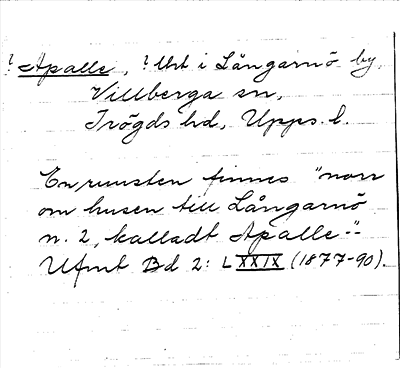 ? Apalle, ? Uht i Långarnö by,
Villberga sn,
Trögds hd, Upps. l.
En runsten finnes "norr
om husen till Långarnö
n. 2, kalladt Apalle".
Ufmt Bd 2: LXXIX (1877-90).